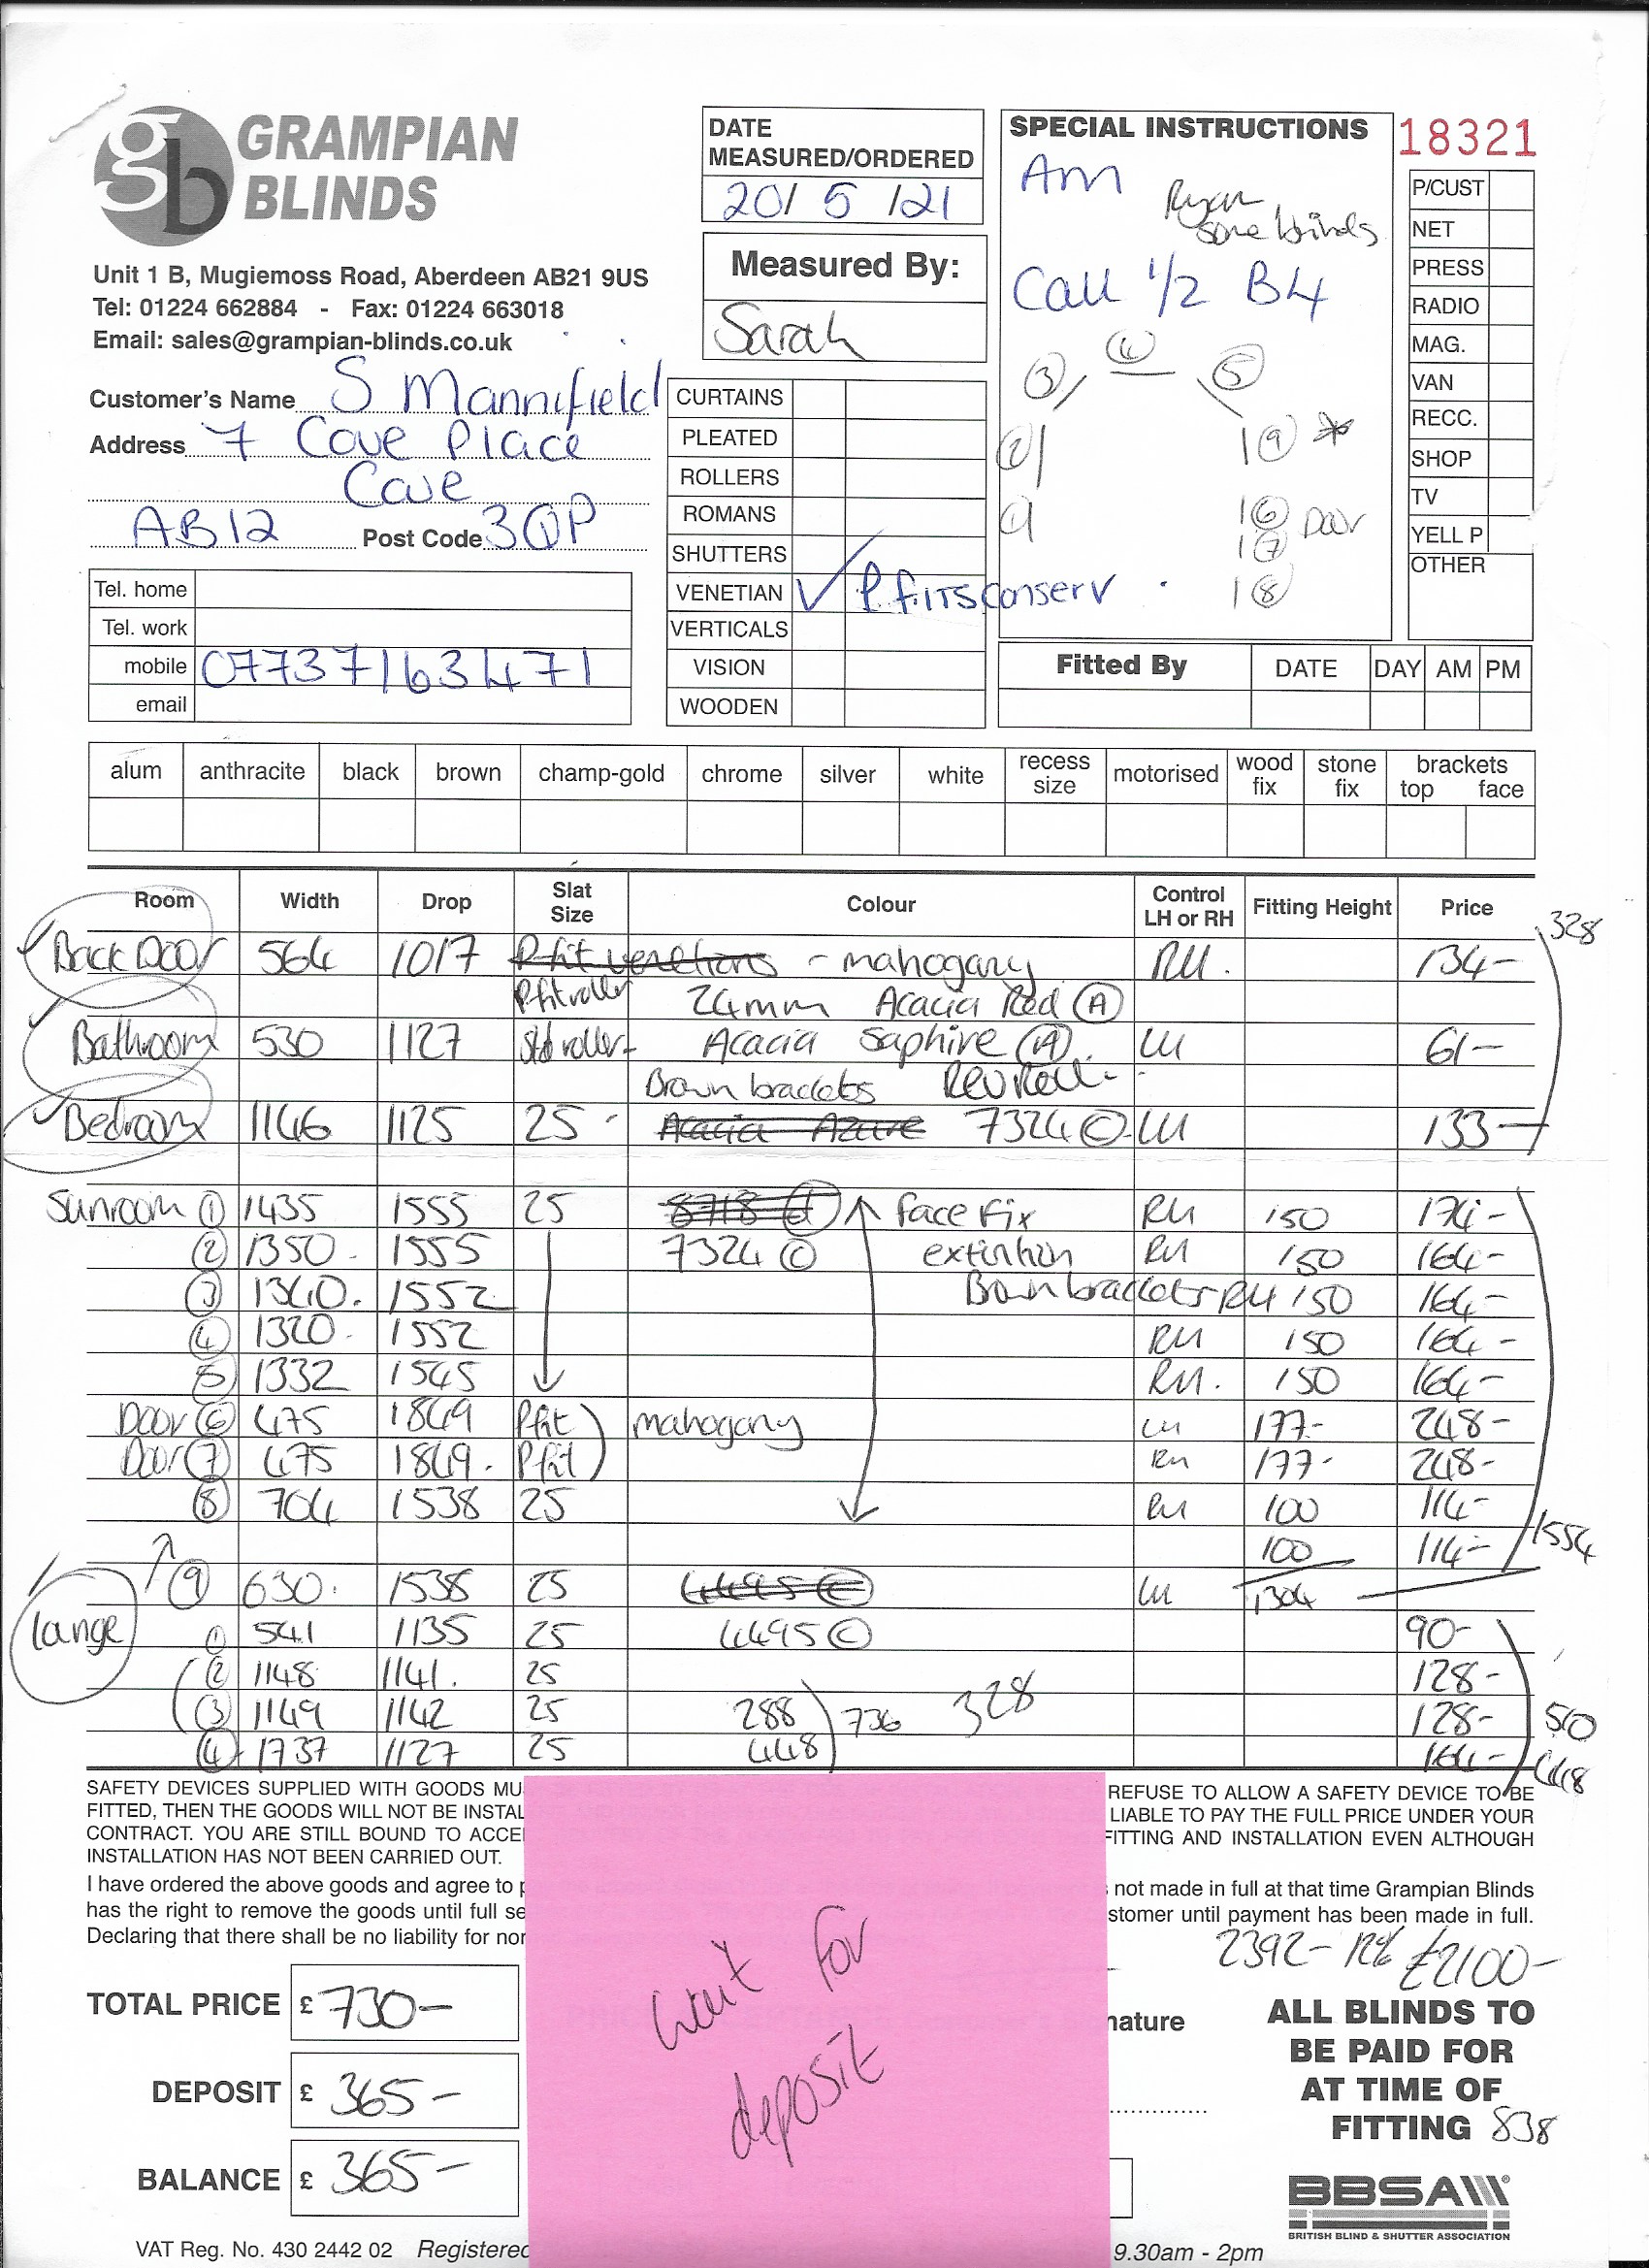 GRAMPIAN
BLINDS
Unit 1 B, Mugiemoss Road, Aberdeen AB21 9US
Tel: 01224 662884 - Fax: 01224 663018
Email: sales@grampian-blinds.co.uk
DATE
MEASURED/ORDERED
20/ 5 /21
Measured By:
Sarah
SPECIAL INSTRUCTIONS
Am
Ryan
some blinds
Call 1/2 B4
3 4 5
2 1 9 *
1 6 Door
7
8
18321
P/CUST
NET
PRESS
RADIO
MAG.
VAN
RECC.
SHOP
TV
YELL P
OTHER
Customer's Name S Mannifield
Address 7 Cove Place
Cove
AB12 Post Code 3QP
Tel. home
Tel. work
mobile 07737163471
email
CURTAINS
PLEATED
ROLLERS
ROMANS
SHUTTERS
VENETIAN ✓ P.fits conserv
VERTICALS
VISION
WOODEN
Fitted By DATE DAY AM PM
alum anthracite black brown champ-gold chrome silver white recess size motorised wood fix stone fix brackets top face
Room Width Drop Slat Size Colour Control LH or RH Fitting Height Price
328
Back Door 564 1017 P-fit venetians - mahogany RH. 134-
P.fit roller 24mm Acacia Red A
Bathroom 530 1127 Std roller- Acacia Saphire A LH 61-
Brown brackets Rev Roll-
Bedroom 1146 1125 25 Acacia Azure 7324 C LH 133-
Sunroom 1 1435 1555 25 8718 d face fix RH 150 174-
2 1350 1555 7324 C extintion RH 150 164-
3 1340. 1552 Brown brackets RH 150 164-
4 1320 1552 RH 150 164-
5 1332 1545 RH. 150 164-
Door 6 475 1849 Pfit mahogany LH 177- 248-
Door 7 475 1849. Pfit RH 177- 248-
8 704 1538 25 RH 100 114-
100 114- 1554
9 630. 1538 25 4495 C LH 1304
lange 1 541 1135 25 4495 C 90-
2 1148 1141. 25 128-
3 1149 1142 25 288 736 328 128- 510
4 1737 1127 25 448 164- 448
SAFETY DEVICES SUPPLIED WITH GOODS MU REFUSE TO ALLOW A SAFETY DEVICE TO BE
FITTED, THEN THE GOODS WILL NOT BE INSTAL LIABLE TO PAY THE FULL PRICE UNDER YOUR
CONTRACT. YOU ARE STILL BOUND TO ACCE FITTING AND INSTALLATION EVEN ALTHOUGH
INSTALLATION HAS NOT BEEN CARRIED OUT.
I have ordered the above goods and agree to p not made in full at that time Grampian Blinds
has the right to remove the goods until full se stomer until payment has been made in full.
Declaring that there shall be no liability for nor
2392- 12% £2100-
wait for
deposit
TOTAL PRICE £ 730-
DEPOSIT £ 365-
BALANCE £ 365-
nature
ALL BLINDS TO
BE PAID FOR
AT TIME OF
FITTING 838
BBSA
BRITISH BLIND & SHUTTER ASSOCIATION
VAT Reg. No. 430 2442 02 Registered 9.30am - 2pm